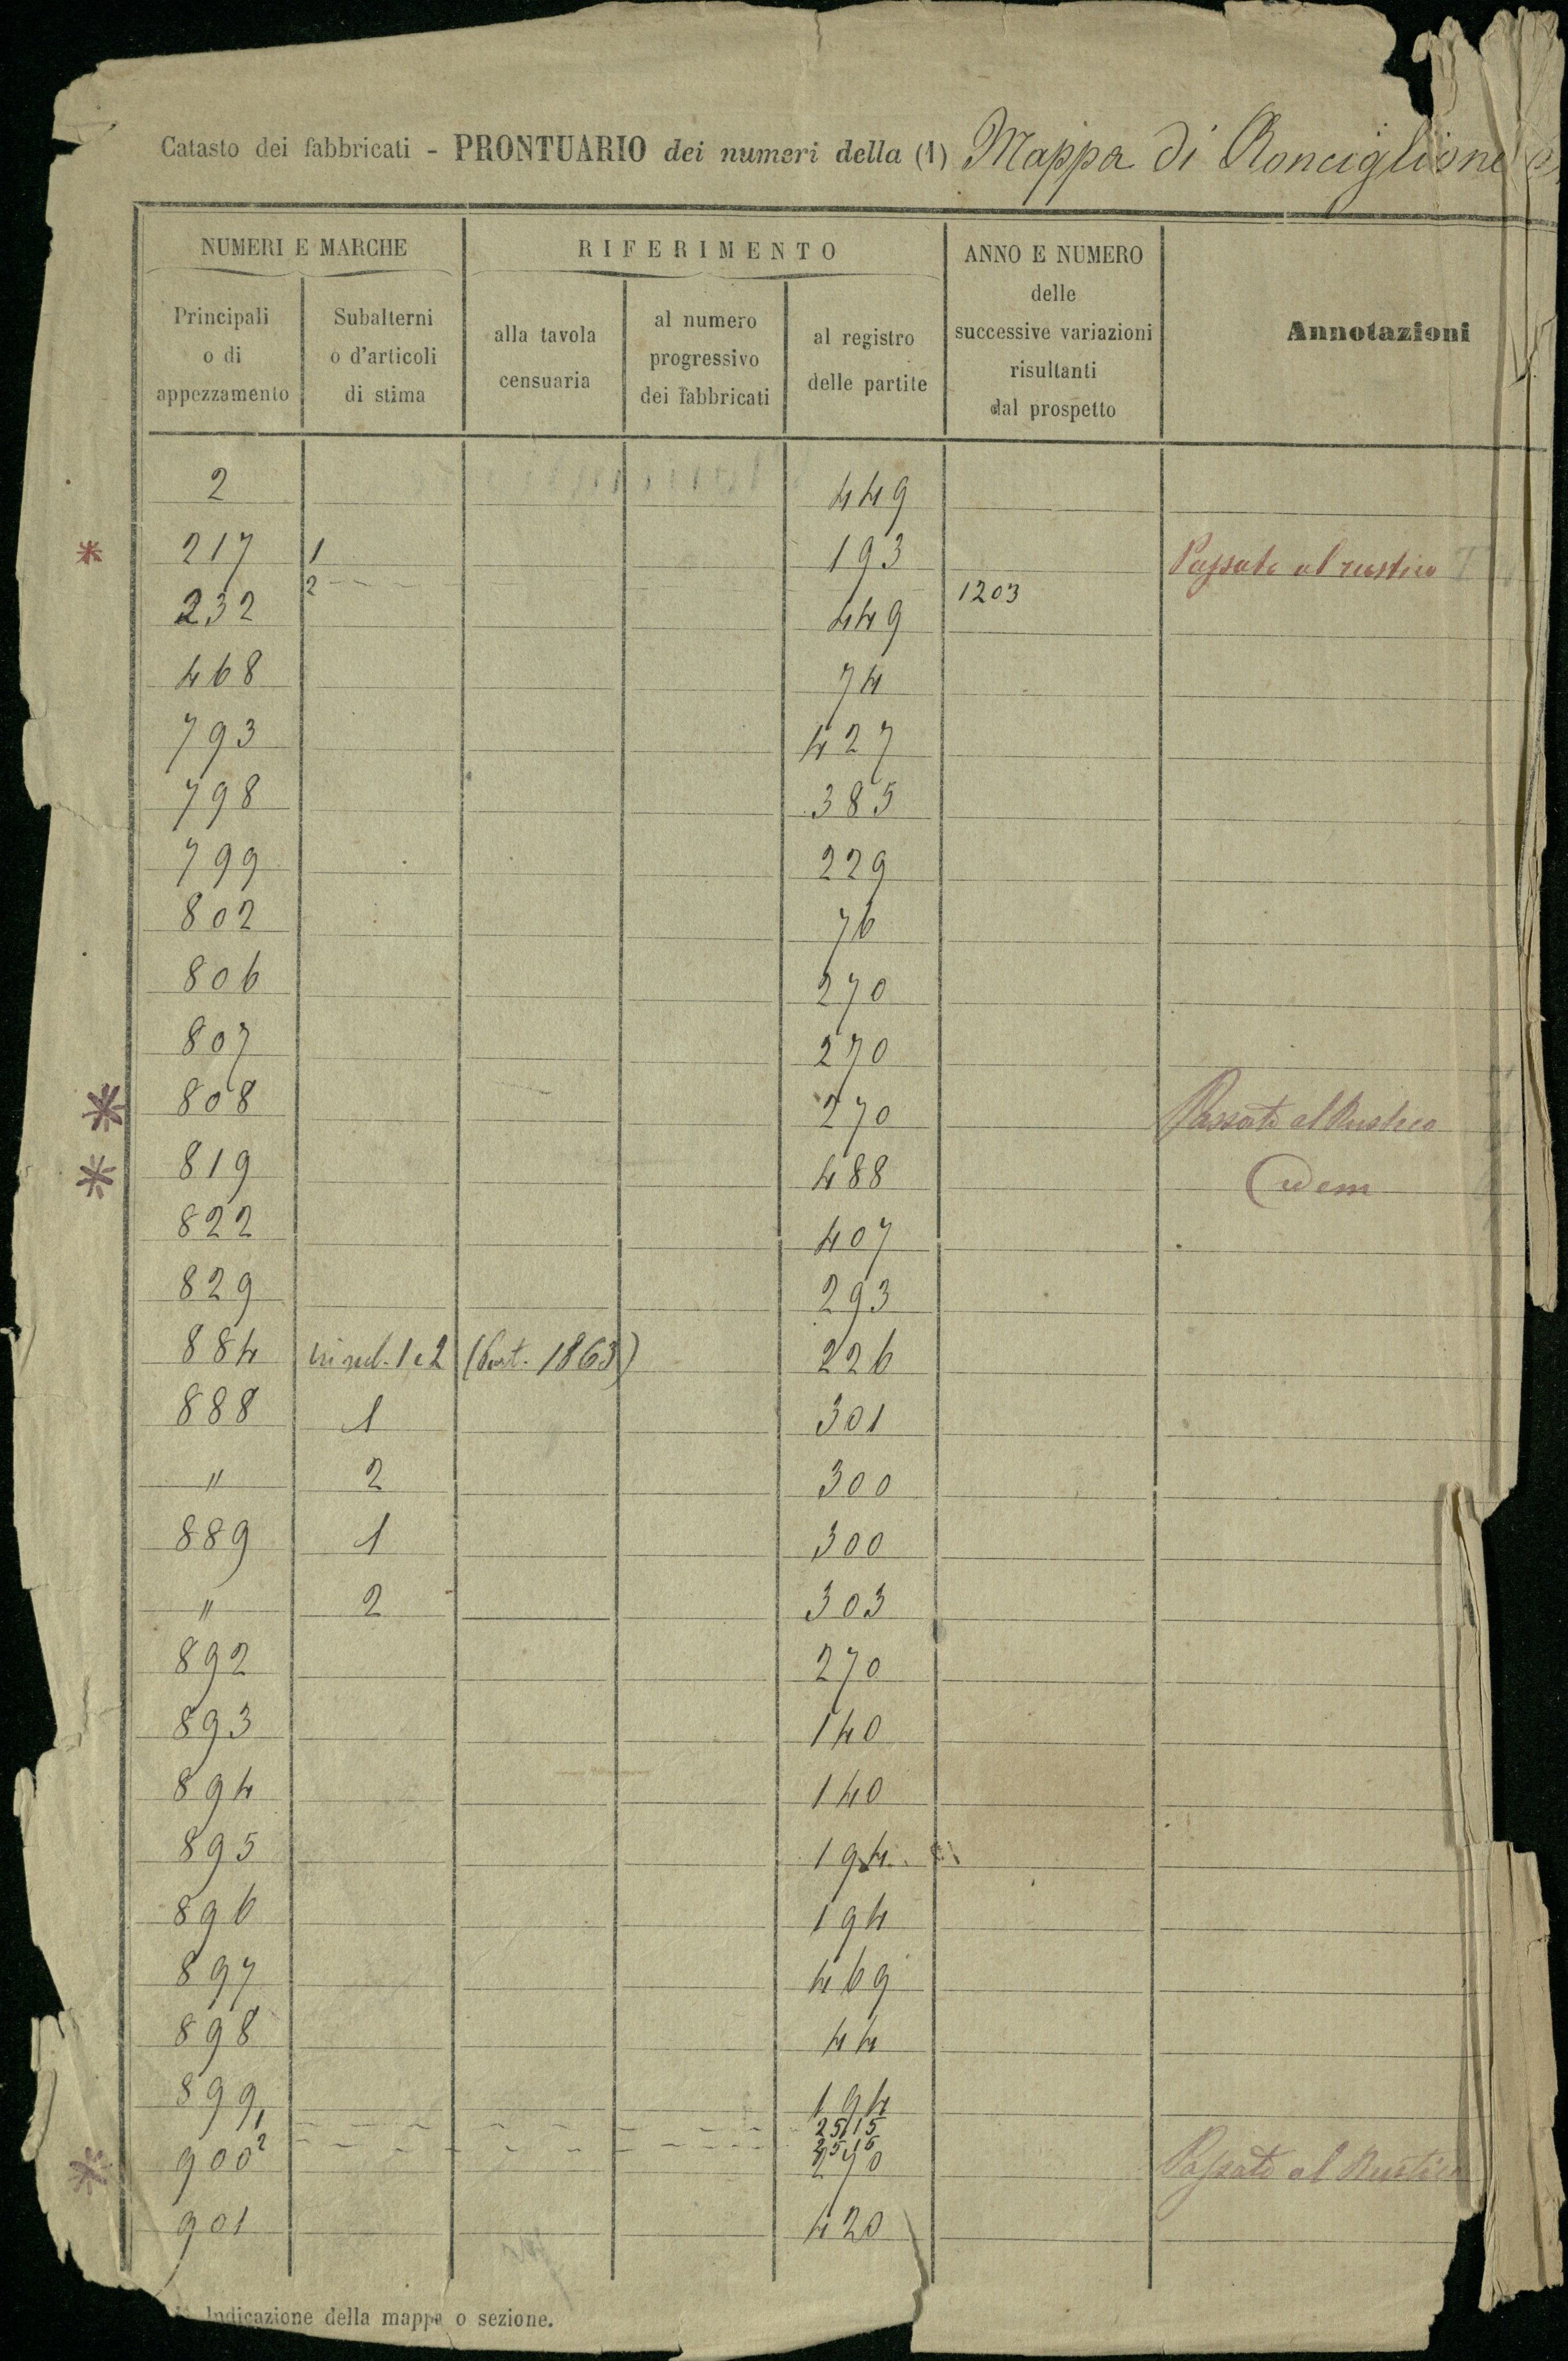 Catasto dei fabbricati - PRONTUARIO dei numeri della (1) Mappa di Ronciglione
NUMERI E MARCHE
RIFERIMENTO
ANNO E NUMERO
delle
successive variazioni
risultanti
dal prospetto
Annotazioni
Principali
o di
appezzamento
Subalterni
o d'articoli
di stima
alla tavola
censuaria
al numero
progressivo
dei fabbricati
al registro
delle partite
2 449
* 217 1 193 Passato al rustico
2 1203
232 449
468 74
793 427
798 385
799 229
802 76
806 270
807 270
* 808 270 Passato al Rustico
* 819 488 Idem
822 407
829 293
884 in sub. 1 e 2 1863) 226
888 1 301
" 2 300
889 1 300
" 2 303
892 270
893 140
894 140
895 194
896 194
897 469
898 44
899 194
1 2515
2 2516
* 900 270 Passato al Rustico
901 420
Indicazione della mappa o sezione.